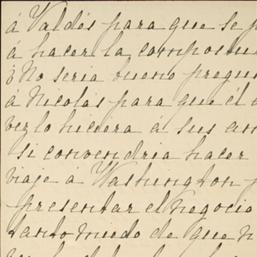 á Valdés para que se p
á hacer la compostu
¿No seria bueno pregun
á Nicolás para que él
verlo hiciera á sus an
si convendria hacer
viaje á Washington p
presentar el negocio
tanto miedo de que n